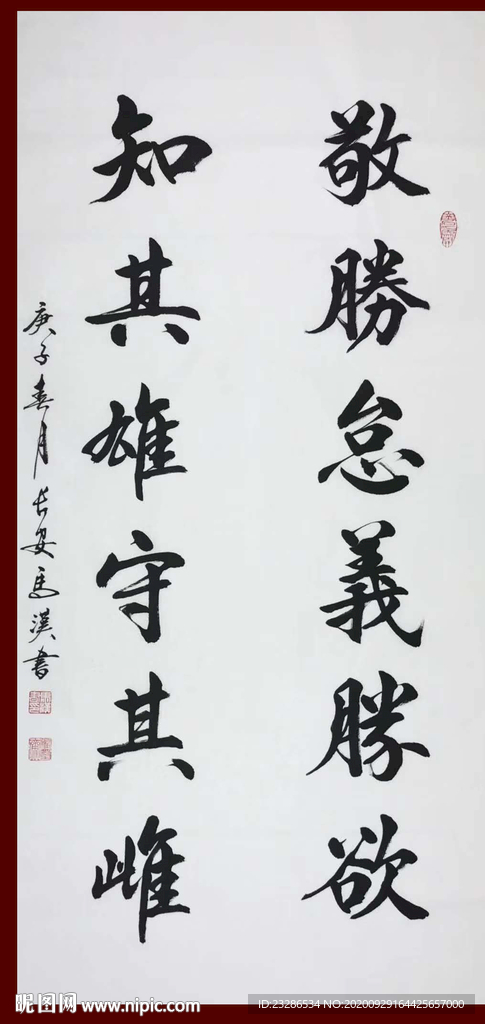 敬勝怠義勝欲
知其雄守其雌
庚子春月長安馬漢書
昵图网 www.nipic.com
ID:23286534 NO:20200929164425657000